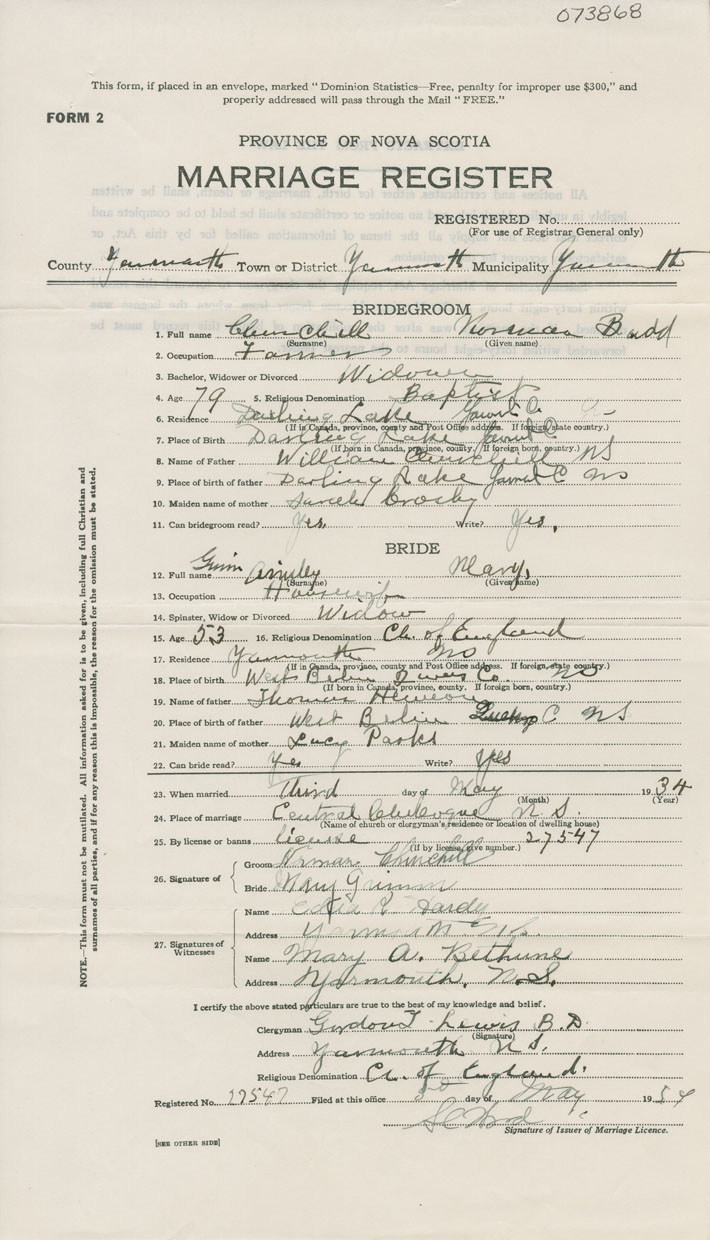 073868
This form, if placed in an envelope, marked "Dominion Statistics—Free, penalty for improper use $300," and
properly addressed will pass through the Mail "FREE."
FORM 2
PROVINCE OF NOVA SCOTIA
MARRIAGE REGISTER
REGISTERED No.
(For use of Registrar General only)
County Yarmouth Town or District Yarmouth Municipality Yarmouth
BRIDEGROOM
1. Full name Churchill Norman Budd
(Surname) (Given name)
2. Occupation Farmer
3. Bachelor, Widower or Divorced Widower
4. Age 79 5. Religious Denomination Baptist
6. Residence Darling Lake Yarmt Co.
(If in Canada, province, county and Post Office address. If foreign, state country.)
7. Place of Birth Darling Lake Yarmt Co
(If born in Canada, province, county. If foreign born, country.)
8. Name of Father William Churchill NS
9. Place of birth of father Darling Lake Yarmt C NS
10. Maiden name of mother Sarah Crosby
11. Can bridegroom read? Yes, Write? Yes.
BRIDE
12. Full name Grimm Mary,
(Surname) (Given name)
13. Occupation Housewife
14. Spinster, Widow or Divorced Widow
15. Age 53 16. Religious Denomination Ch. of England
17. Residence Yarmouth NS
(If in Canada, province, county and Post Office address. If foreign, state country.)
18. Place of birth West Berlin Queens Co. NS
(If born in Canada, province, county. If foreign born, country.)
19. Name of father Thomas
20. Place of birth of father West Berlin Queens C NS
21. Maiden name of mother Lucy Parks
22. Can bride read? Yes Write? Yes
23. When married third day of May 1934
(Month) (Year)
24. Place of marriage Central Chebogue N S
(Name of church or clergyman's residence or location of dwelling house)
25. By license or banns license 27547
(If by license, give number.)
26. Signature of
Groom Norman Churchill
Bride Mary Grimm
27. Signatures of Witnesses
Name R Hardy
Address Yarmouth N.S.
Name Mary A. Bethune
Address Yarmouth, N.S.
I certify the above stated particulars are true to the best of my knowledge and belief.
Clergyman Gordon T. Lewis B.D.
(Signature)
Address Yarmouth N S.
Religious Denomination Ch. of England.
Registered No. 27547 Filed at this office day of May 1934
Signature of Issuer of Marriage Licence.
[SEE OTHER SIDE]
NOTE.—This form must not be mutilated. All information asked for is to be given, including full Christian and
surnames of all parties, and if for any reason this is impossible, the reason for the omission must be stated.